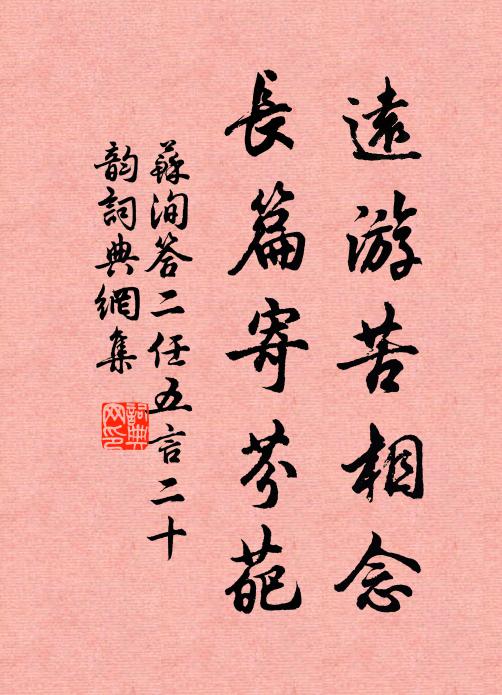 遠游苦相念
長篇寄芬葩
蘇洵答二任五言二十
韵詞典網集
詞典网印